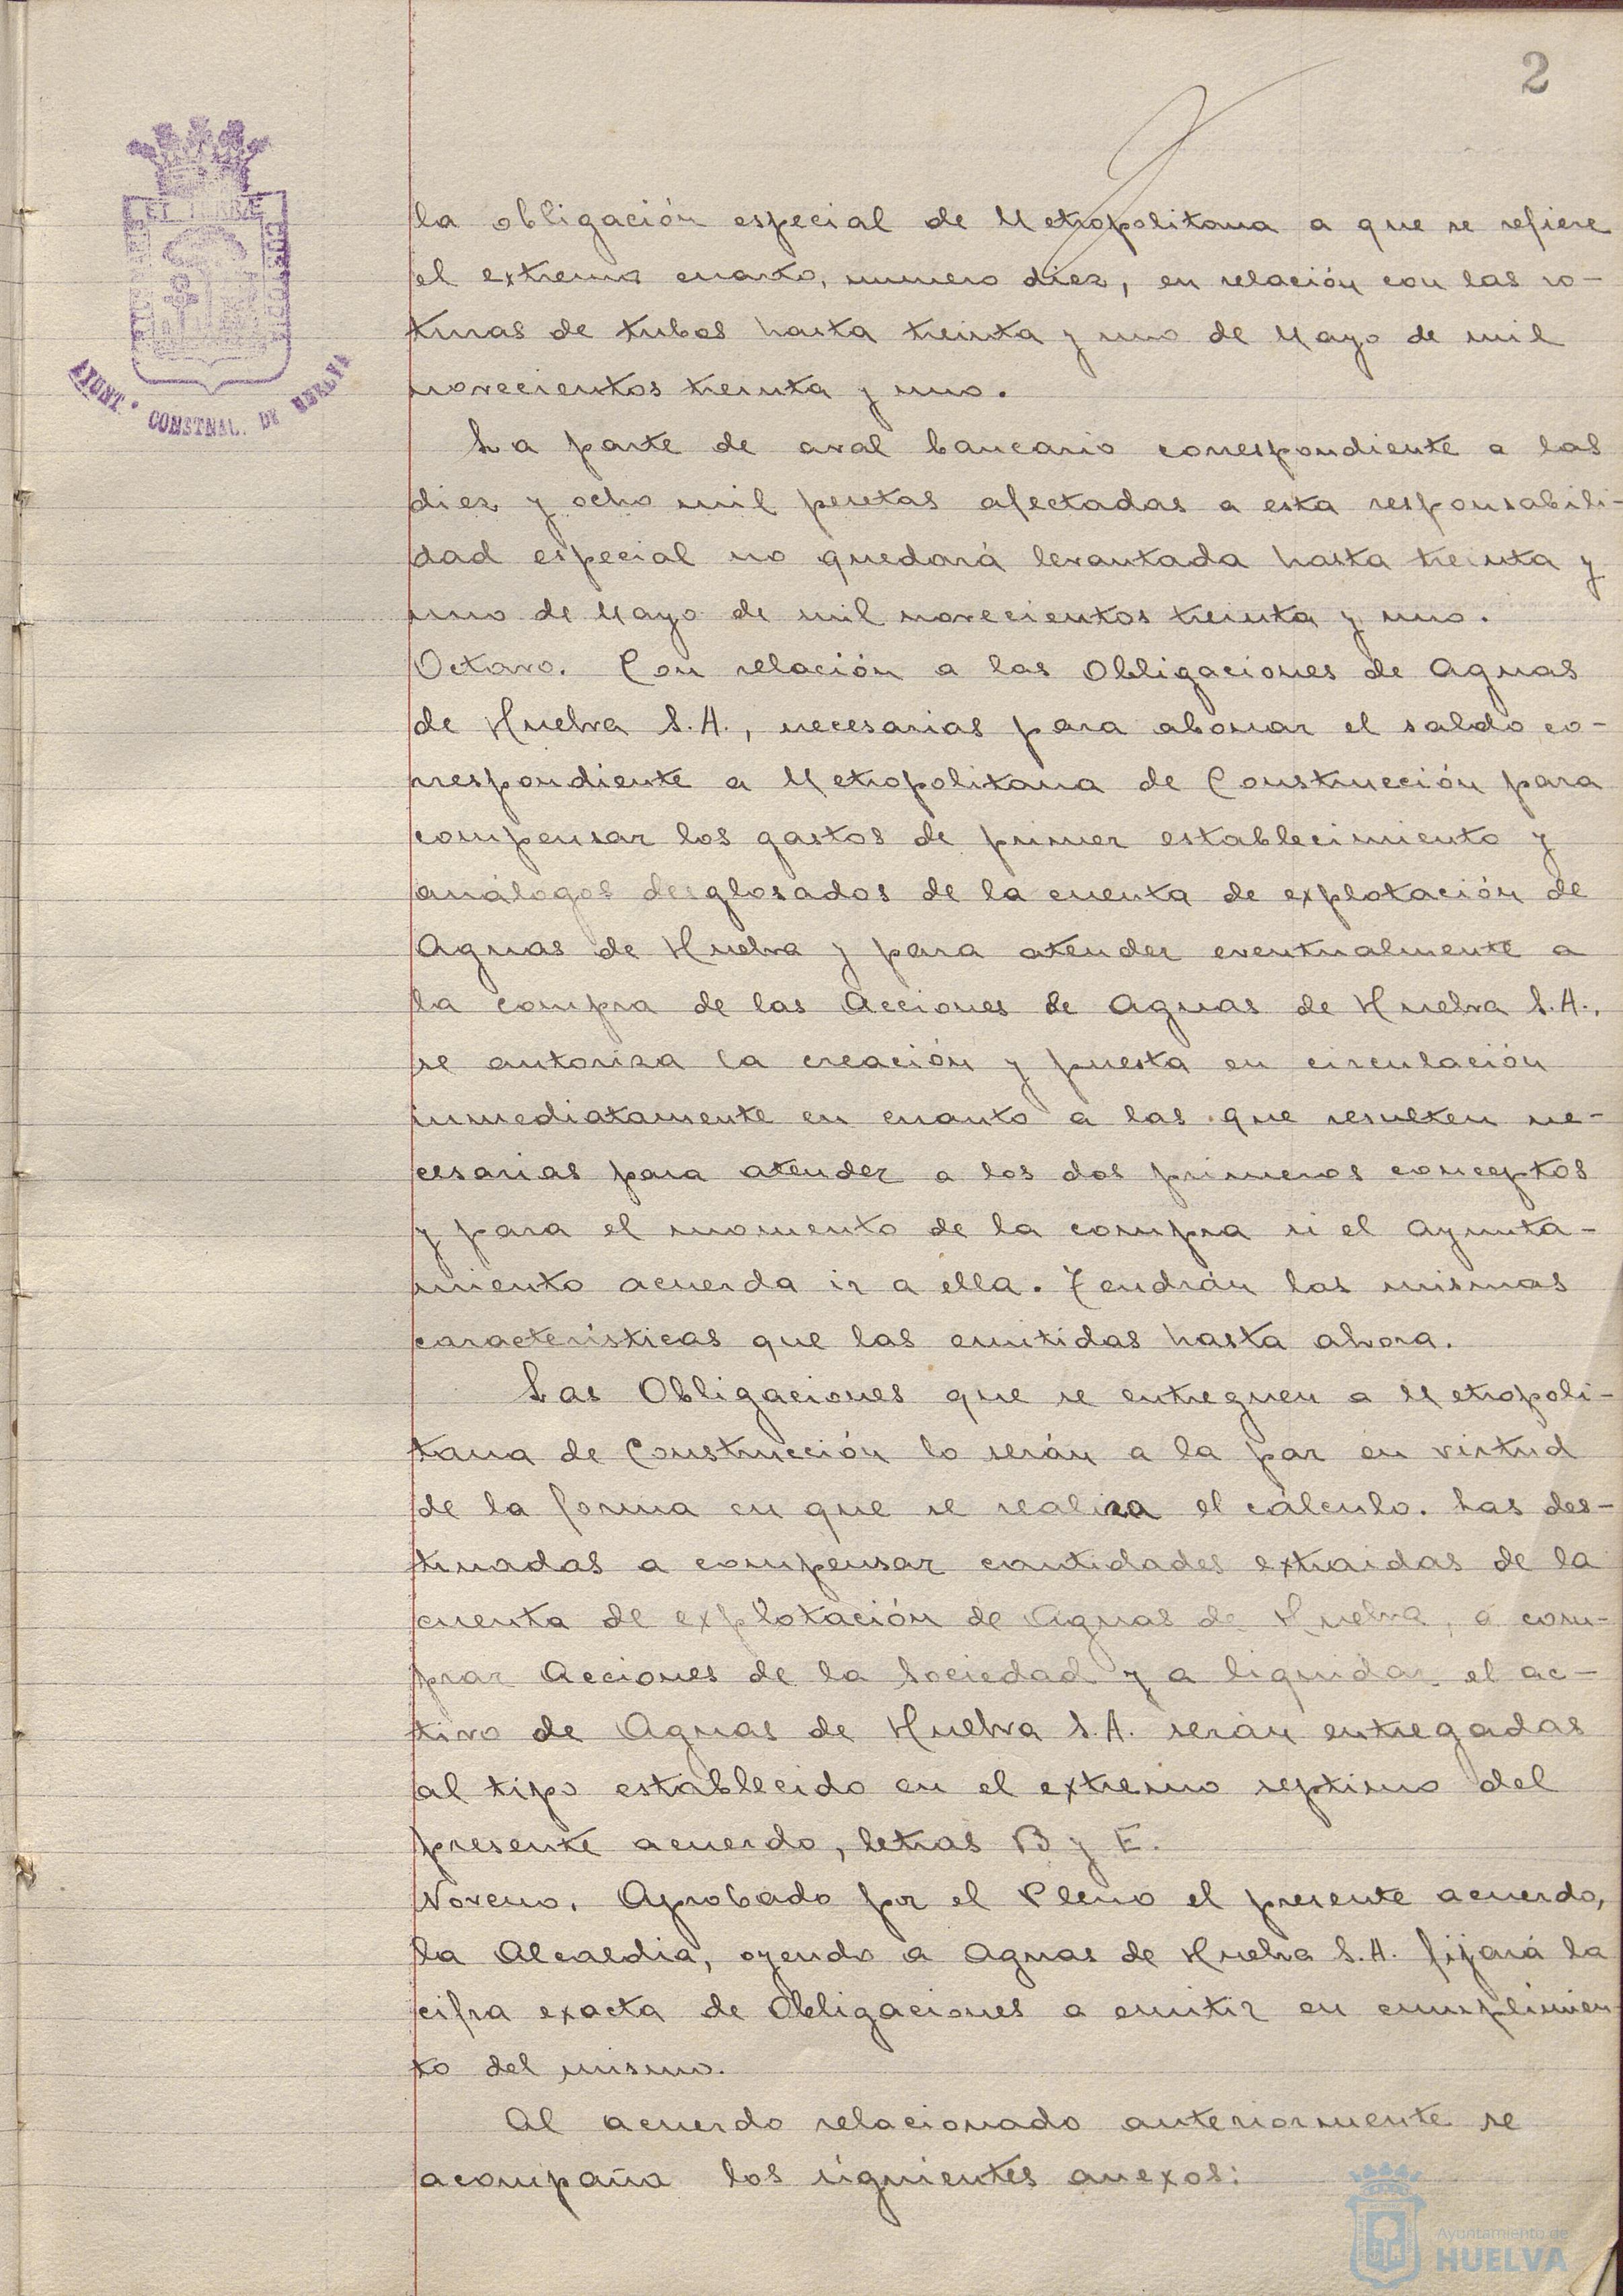 2
ET TERRÆ
AYUNT.º CONSTNAL. DE HUELVA
la obligación especial de Metropolitana a que se refiere
el extremo cuarto, numero diez, en relación con las ro-
turas de tubos hasta treinta y uno de Mayo de mil
novecientos treinta y uno.
La parte de aval bancario correspondiente a las
diez y ocho mil pesetas afectadas a esta responsabili-
dad especial no quedará levantada hasta treinta y
uno de Mayo de mil novecientos treinta y uno.
Octavo. Con relación a las Obligaciones de Aguas
de Huelva S.A., necesarias para abonar el saldo co-
rrespondiente a Metropolitana de Construcción para
compensar los gastos de primer establecimiento y
análogos desglosados de la cuenta de explotación de
Aguas de Huelva y para atender eventualmente a
la compra de las Acciones de Aguas de Huelva S.A.,
se autoriza la creación y puesta en circulación
inmediatamente en cuanto a las que resulten ne-
cesarias para atender a los dos primeros conceptos
y para el momento de la compra si el Ayunta-
miento acuerda ir a ella. Tendrán las mismas
características que las emitidas hasta ahora.
Las Obligaciones que se entreguen a Metropoli-
tana de Construcción lo serán a la par en virtud
de la forma en que se realiza el cálculo. Las des-
tinadas a compensar cantidades extraidas de la
cuenta de explotación de Aguas de Huelva, a com-
prar Acciones de la Sociedad y a liquidar el ac-
tivo de Aguas de Huelva S.A. serán entregadas
al tipo establecido en el extremo septimo del
presente acuerdo, letras B y E.
Noveno. Aprobado por el Pleno el presente acuerdo,
la Alcaldia, oyendo a Aguas de Huelva S.A. fijará la
cifra exacta de Obligaciones a emitir en cumplimien-
to del mismo.
Al acuerdo relacionado anteriormente se
acompaña los siguientes anexos:
Ayuntamiento de
HUELVA